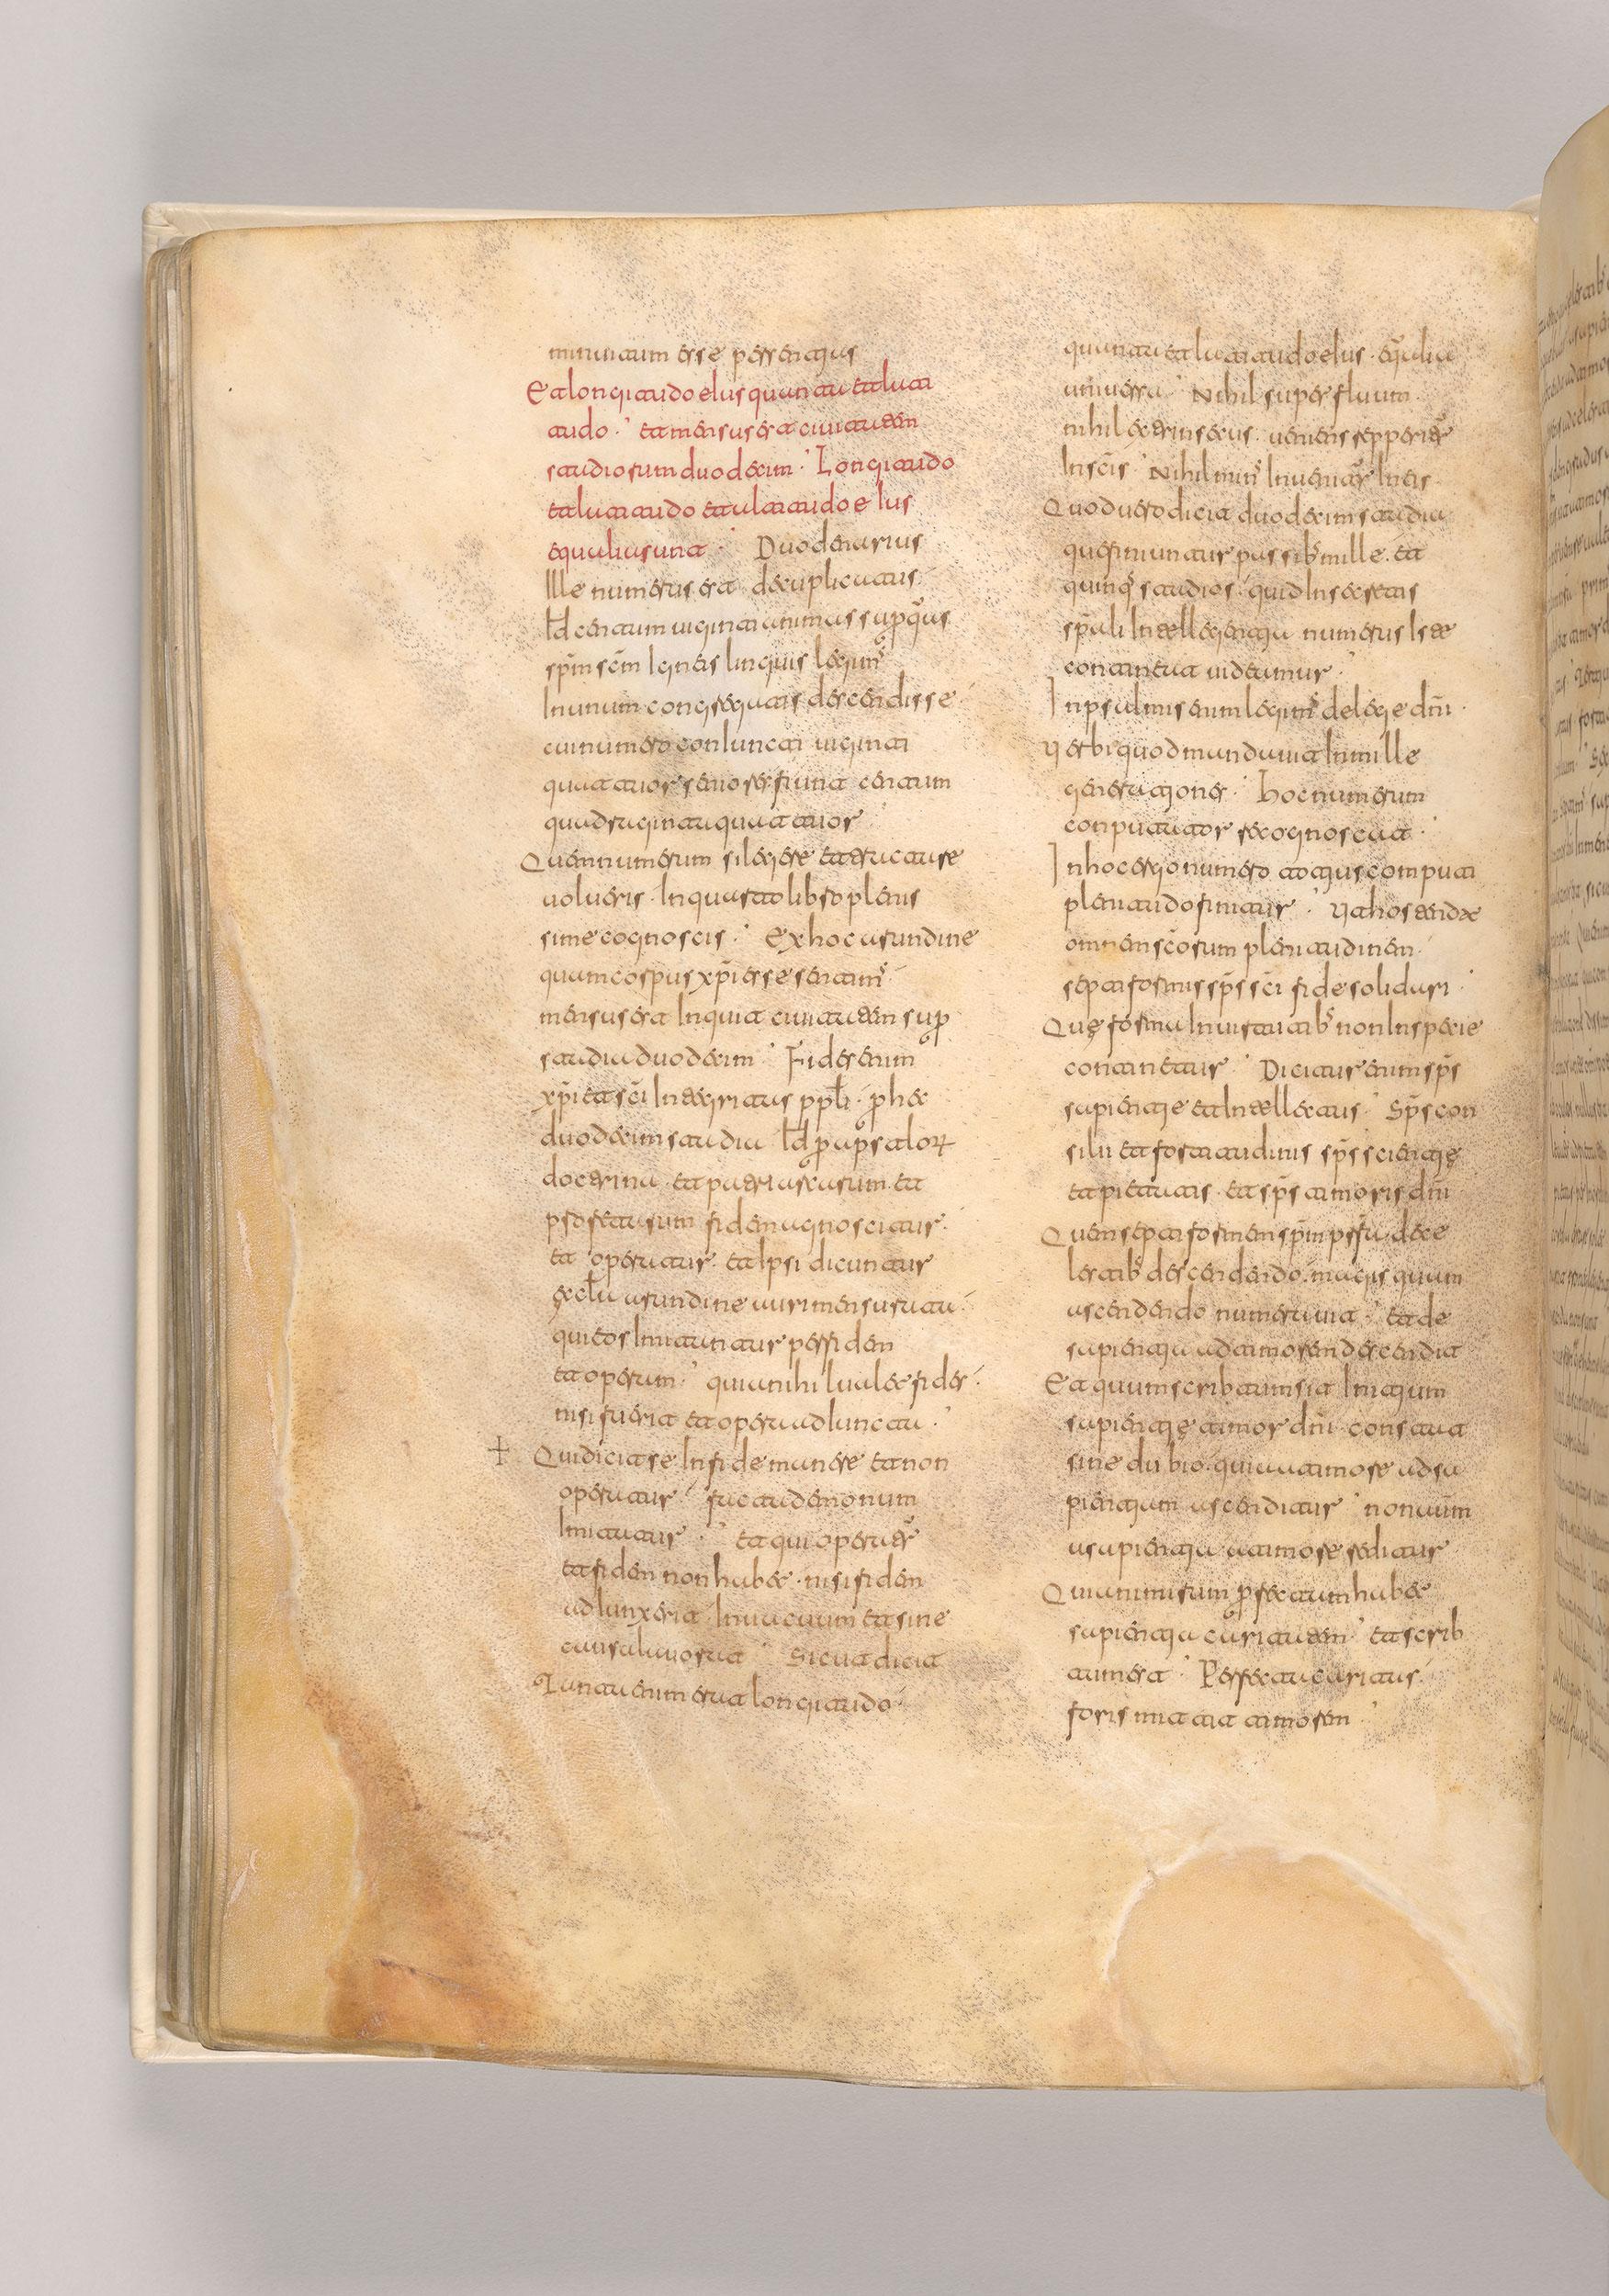 esse
Et longitudo eius quanta et lati
tudo · et mensus est cibitatem
stadiorum duodecim · Longitudo
et latitudo et altitudo eius
equalia sunt · Duodenarius
Ille numerus est decuplicatus
Id centum viginti animas supr quas
spm scm igneis linguis legimꝰ
In unum congregatis descendisse
cui numero coniuncti viginti
quattuor seniores fiunt centum
quadraginta quattuor
Quem numerum si legere et tractare
volueris · In quarto libro pleni
sime cognoscis · Ex hoc arundine
quam corpus xpi esse sentimꝰ ·
mensus est Inquit cibitatem supr
stadia duodecim · Fides enim
xpi et sci Integritas ppli · per hec
duodecim stadia Id per apstolorum
doctrina et patriarcarum et
profetarum fidem agnoscitur ·
et operatur et Ipsi dicuntur
ęclā arundine auri mensurata ·
qui eos Imitantur per fidem
et operum · quia nihil valet fides ·
nisi fuerit et opera adiuncta ·
+ Qui dicit se In fide manere et non
operatur · fictu demonum
Imitatur · et qui operatur
et fidem non habet · nisi fidem
adiunxerit In vacuum et sine
causa laborat Sicut dicit
Tanta enim erat longitudo
quanta et latitudo eius · equalia
universa · Nihil superfluum ·
nihil extrinsecus · veniens repperitur
In scis · Nihil minꝰ Invenitur In eis
Quod vero dicit duodecim stadia
que finiuntur passibꝰ mille · et
quinqꝰ stadios · quid In secretis
sprali Intellegentia numerus Iste
contineat videamur ·
In psalmis enim legimꝰ de lege dni ·
Verbi quod mandavit In mille
generationes · Hoc numerum
conputator recognoscat ·
In hoc ergo numero totius computi
plenitudo finitur · Ut hostendat
omnem scorum plenitudinem ·
septiformis sps sci fide solidari ·
Quę forma In virtutibꝰ non In specie
continetur · Dicitur enim sps
sapientie et Intellectus · Sps con
silii et fortitudinis sps scientię
et pietatis · et sps timoris dni
Quem septiformem spm prfta de ce
lestibꝰ descendendo · magis quam
ascendendo numeravit · et de
sapientia ad timorem descendit
Et quum scribtum sit Initium
sapientię timor dni · constat
sine dubio · quia a timore ad sa
pientiam ascenditur · non autem
a sapientia a timore reditur
Quia nimirum perfectum habet
sapientia caritatem · et scrib
tum est · Perfecta caritas
foris mittit timorem